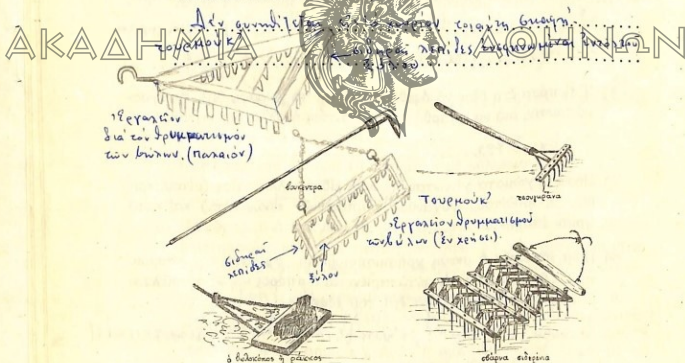 Δέν συνηθίζεται εἰς τό χωρίον τοιαύτη σκαφή.
ΑΚΑΔΗΜΙΑ ΑΘΗΝΩΝ
τουρμούκ'
← σιδηραῖ λεπίδες ἐντὸς τοῦ ξύλου
Ἐργαλεῖον
διά τόν θρυμματισμόν
τῶν βώλων. (παλαιόν)
βουκέντρα
τσουγκράνα
Τουρμούκ'
Ἐργαλεῖον θρυμματισμοῦ
τῶν βώλων (ἐν χρήσει).
σιδηραῖ
λεπίδες
ξύλον
ὁ βωλοκόπος ἤ ράκκος
σβάρνα σιδερένια